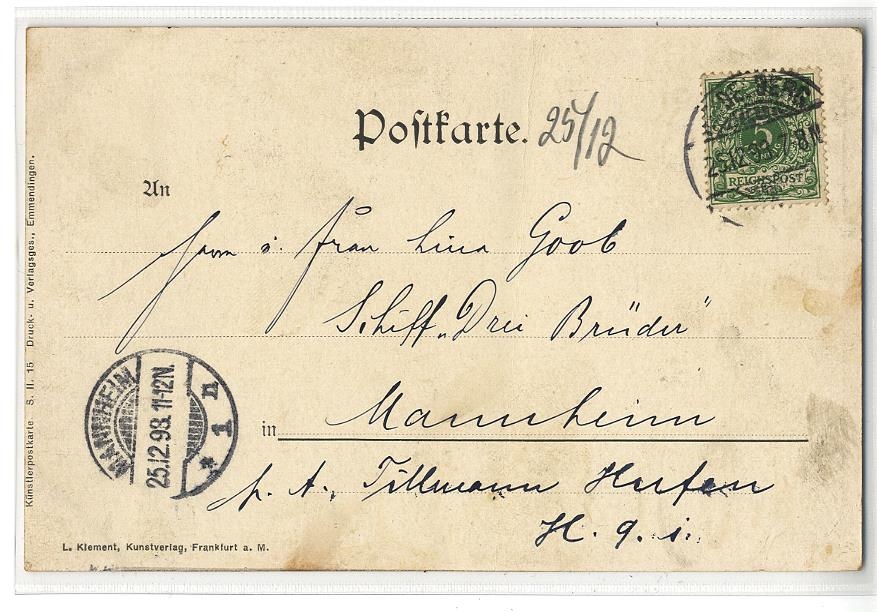 Postkarte. 25/12
5
REICHSPOST
25.12.98. 7-8N
An
Herrn u. Frau Lina Goob
Schiff „Drei Brüder“
in Mannheim
p. A. Tillmann Hafen
H. 9. i.
MANNHEIM
25.12.98. 11-12N.
* 1 n
Künstlerpostkarte. S. II. 15 Druck- u. Verlagsges., Emmendingen.
L. Klement, Kunstverlag, Frankfurt a. M.